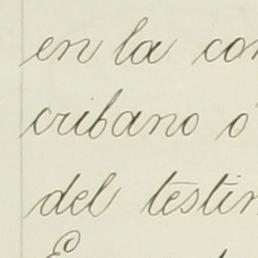 en la con
cribano ó
del testin